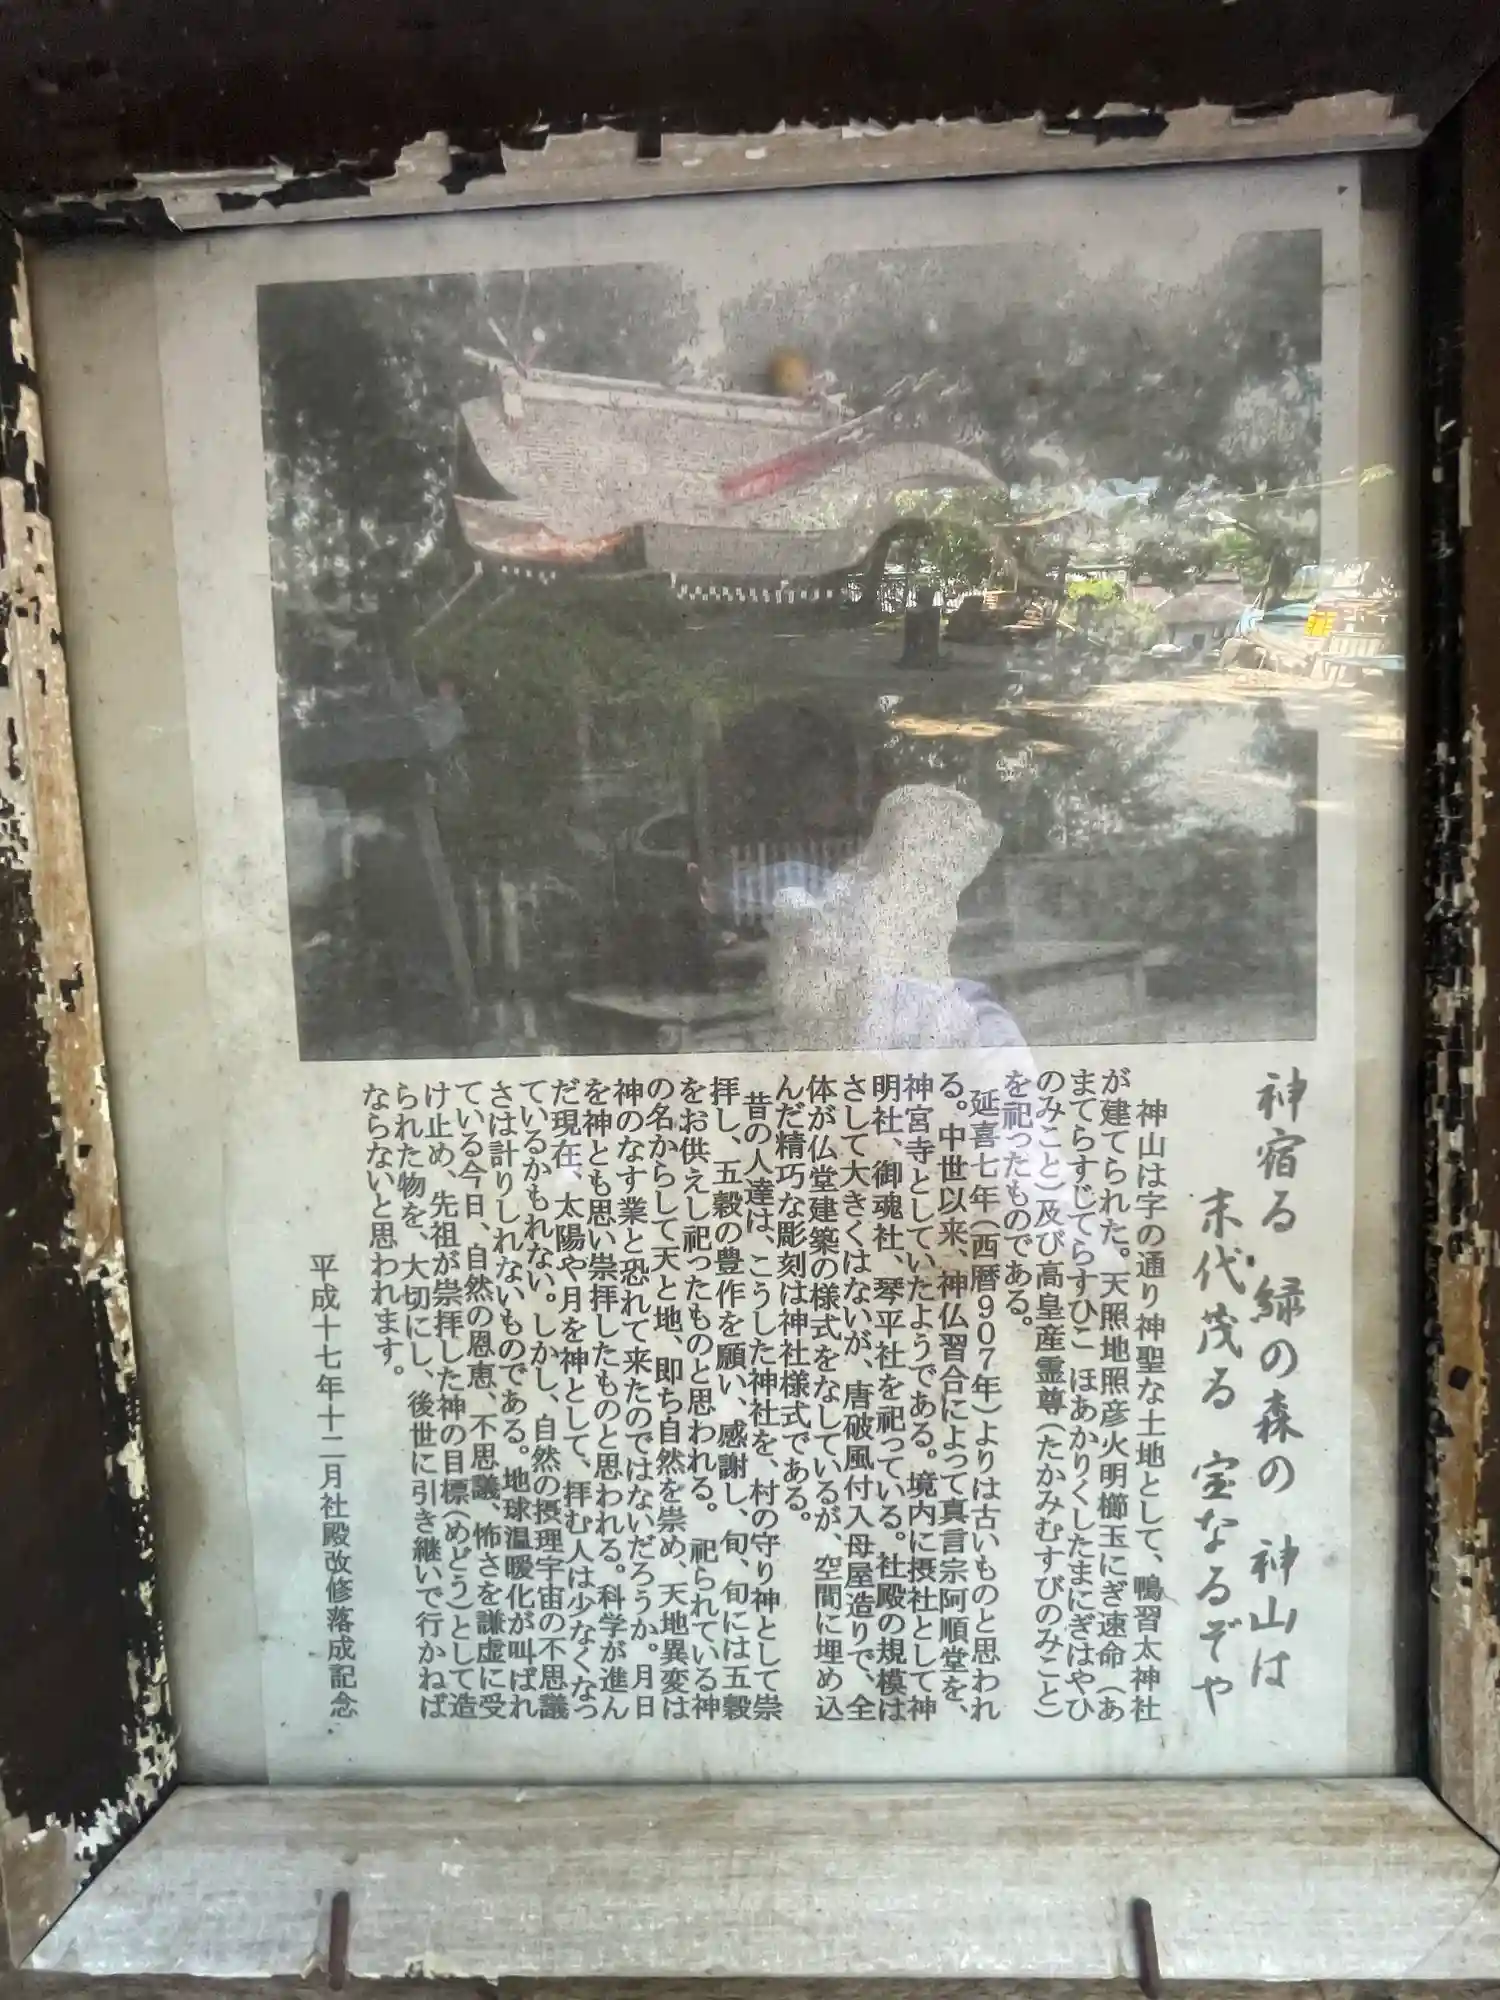 神宿る 緑の森の 神山は
末代茂る 宝なるぞや
神山は字の通り神聖な土地として、鴨習太神社
が建てられた。天照地照彦火明櫛玉にぎ速命(あ
まてらすじてらすひこ ほあかりくしたまにぎはやひ
のみこと)及び高皇産霊尊(たかみむすびのみこと)
を祀ったものである。
延喜七年(西暦907年)よりは古いものと思われ
る。中世以来、神仏習合によって真言宗阿順堂を、
神宮寺としていたようである。境内に摂社として神
明社、御魂社、琴平社を祀っている。社殿の規模は
さして大きくはないが、唐破風付入母屋造りで、全
体が仏堂建築の様式をなしているが、空間に埋め込
んだ精巧な彫刻は神社様式である。
昔の人達は、こうした神社を、村の守り神として崇
拝し、五穀の豊作を願い、感謝し、旬、旬には五穀
をお供えし祀ったものと思われる。祀られている神
の名からして天と地、即ち自然を崇め、天地異変は
神のなす業と恐れて来たのではないだろうか。月日
を神とも思い崇拝したものと思われる。科学が進ん
だ現在、太陽や月を神として、拝む人は少なくなっ
ているかもれない。しかし、自然の摂理宇宙の不思議
さは計りしれないものである。地球温暖化が叫ばれ
ている今日、自然の恩恵、不思議、怖さを謙虚に受
け止め、先祖が崇拝した神の目標(めどう)として造
られた物を、大切にし、後世に引き継いで行かねば
ならないと思われます。
平成十七年十二月社殿改修落成記念